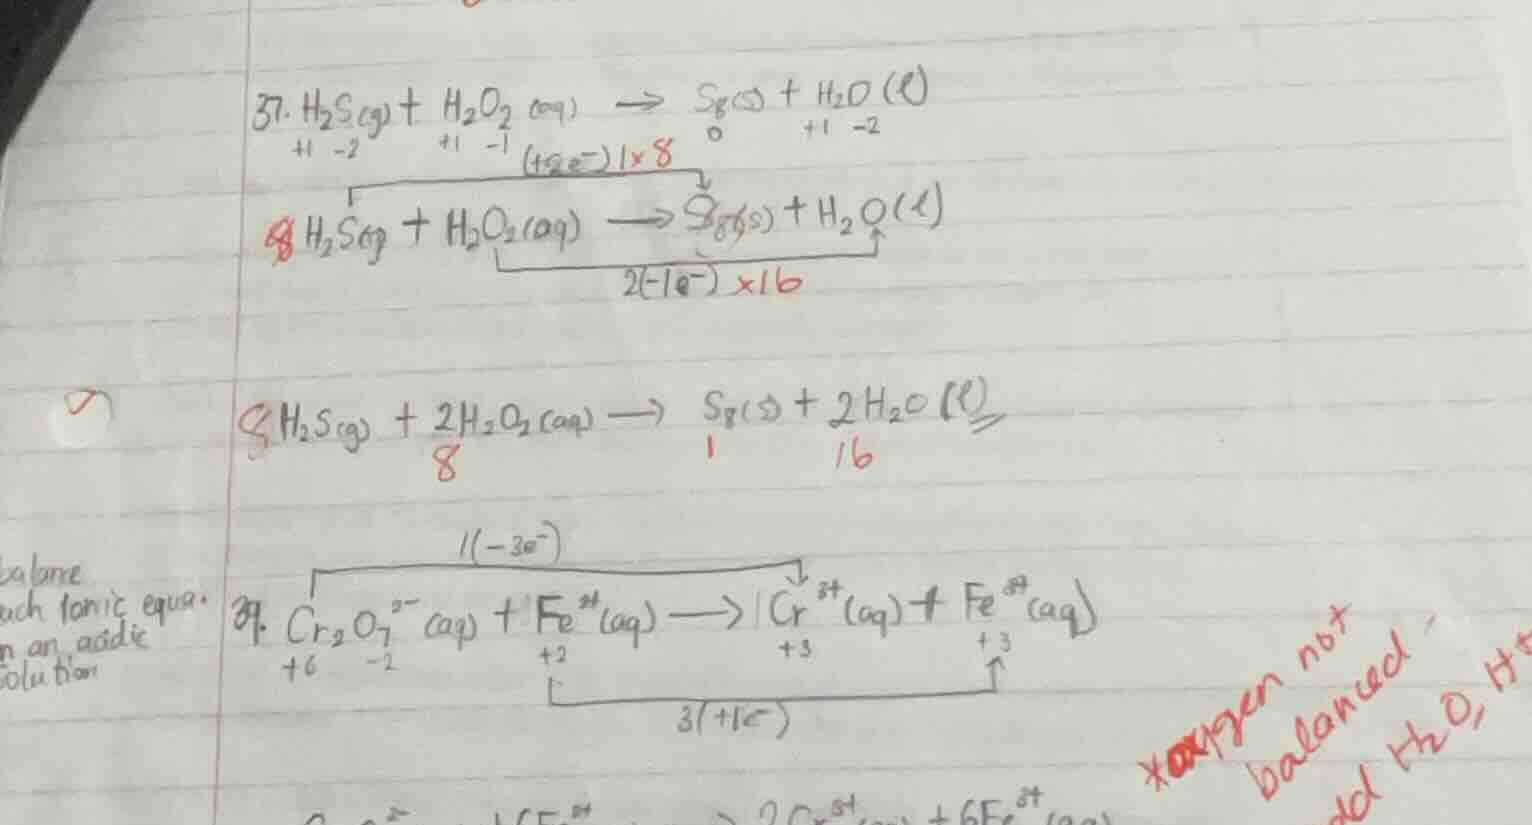 37. H₂S(g) + H₂O₂ (aq) → S₈(s) + H₂O (l)
+1 -2 +1 -1 0 +1 -2
(+2e⁻) 1 × 8
8 H₂S(g) + H₂O₂(aq) → S₈(s) + H₂O(l)
2(-1e⁻) ×16
8 H₂S(g) + 2H₂O₂(aq) → S₈(s) + 2H₂O (l)
8 1 16
1(-3e⁻)
balance
ach Ionic equa.
n an acidic
solution
39. Cr₂O₇²⁻ (aq) + Fe²⁺(aq) → 1Cr³⁺(aq) + Fe³⁺(aq)
+6 -2 +2 +3 +3
3(+1e⁻)
*oxygen not
balanced
dd H₂O, H+
2Cr³⁺ + 6Fe³⁺(aq)